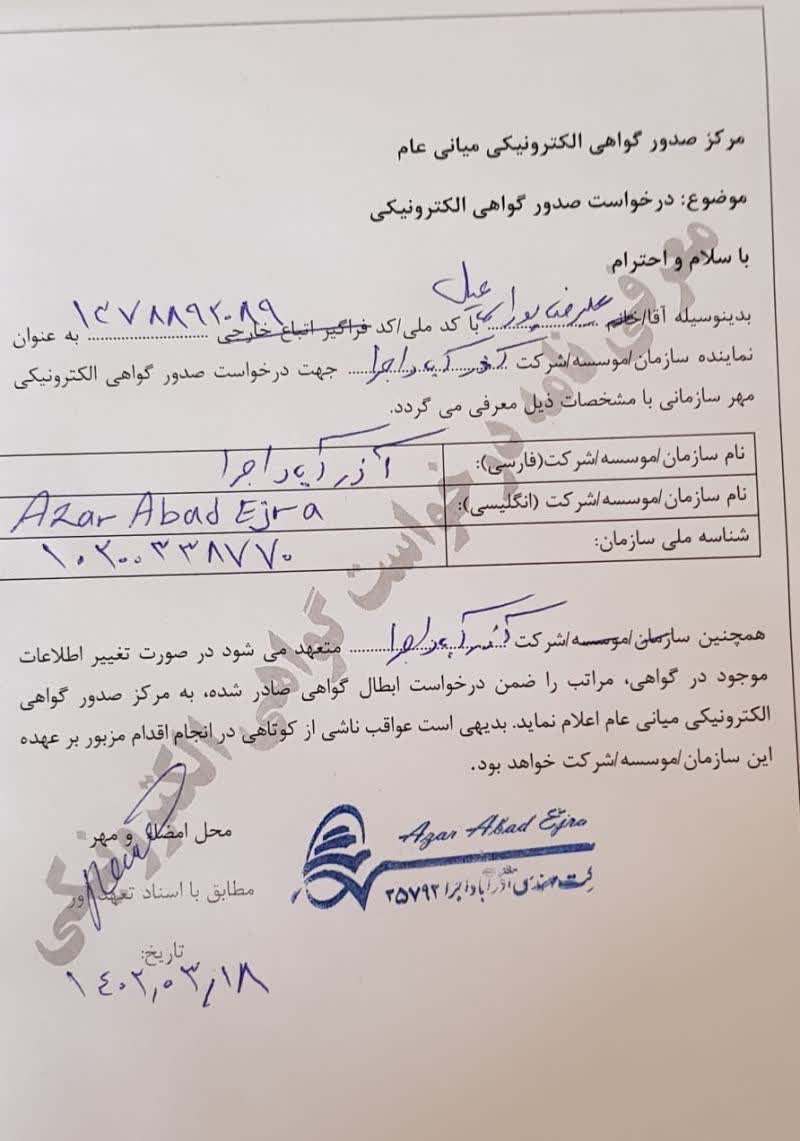 مرکز صدور گواهی الکترونیکی میانی عام
موضوع: درخواست صدور گواهی الکترونیکی
با سلام و احترام
بدینوسیله آقا/خانم علیرضا پور با کد ملی/کد فراگیر اتباع خارجی ۱۳۷۸۸۹۲۰۸۹ به عنوان
نماینده سازمان/موسسه/شرکت آذر آباد اجرا جهت درخواست صدور گواهی الکترونیکی
مهر سازمانی با مشخصات ذیل معرفی می گردد.
نام سازمان/موسسه/شرکت(فارسی): آذر آباد اجرا
نام سازمان/موسسه/شرکت (انگلیسی): Azar Abad Ejra
شناسه ملی سازمان: ۱۰۲۰۰۳۳۸۷۷۰
همچنین سازمان/موسسه/شرکت آذر آباد اجرا متعهد می شود در صورت تغییر اطلاعات
موجود در گواهی، مراتب را ضمن درخواست ابطال گواهی صادر شده، به مرکز صدور گواهی
الکترونیکی میانی عام اعلام نماید. بدیهی است عواقب ناشی از کوتاهی در انجام اقدام مزبور بر عهده
این سازمان/موسسه/شرکت خواهد بود.
محل امضاء و مهر
مطابق با اسناد تعهد آور
Azar Abad Ejra
شرکت مهندسی آذر آباد اجرا ۲۵۷۹۲
تاریخ:
۱۴۰۲,۰۳/۱۸
معرفی نامه درخواست گواهی الکترونیکی